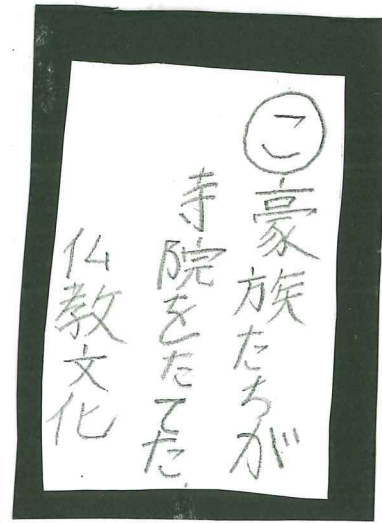 ㋙豪族たちが
寺院をたてた
仏教文化